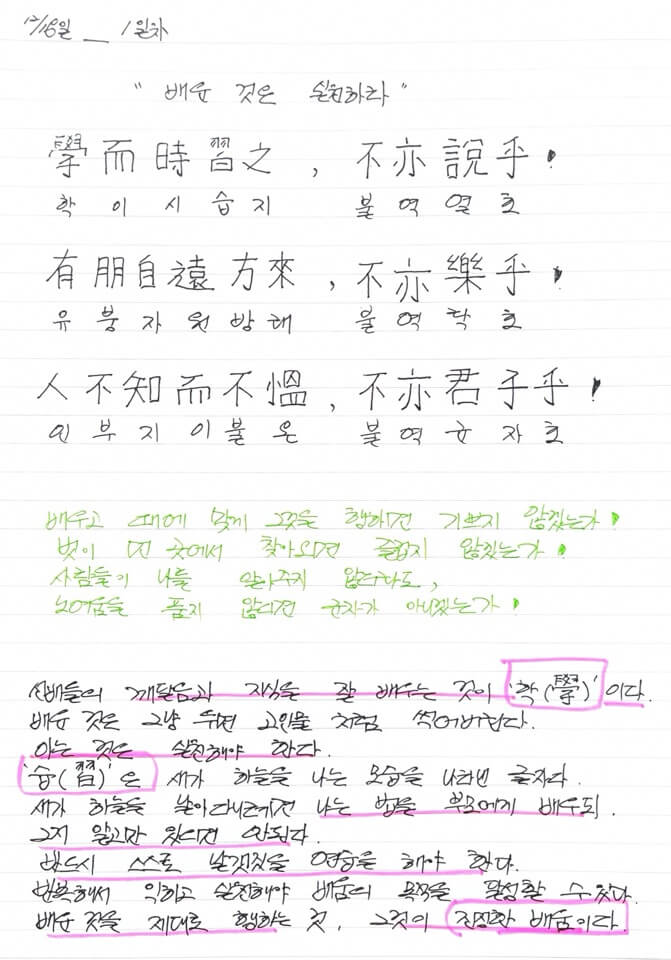 12/18일 _ 1일차
"배운 것은 실천하라"
學而時習之, 不亦說乎!
학이시습지 불역열호
有朋自遠方來, 不亦樂乎!
유붕자원방래 불역락호
人不知而不慍, 不亦君子乎!
인부지이불온 불역군자호
배우고 때에 맞게 그것을 행하면 기쁘지 않겠는가!
벗이 먼 곳에서 찾아오면 즐겁지 않겠는가!
사람들이 나를 알아주지 않더라도,
노여움을 품지 않으면 군자가 아니겠는가!
선배들의 깨달음과 지식을 잘 배우는 것이 '학(學)'이다.
배운 것은 그냥 두면 고인물처럼 썩어버린다.
아는 것은 실천해야 한다.
'습(習)'은 새가 하늘을 나는 모습을 나타낸 글자다.
새가 하늘을 날아다니려면 나는 법을 부모에게 배우되
그저 알고만 있으면 안된다.
반드시 스스로 날갯짓을 연습을 해야 한다.
반복해서 익히고 실천해야 배움의 목적을 달성할 수 있다.
배운 것을 제대로 행하는 것, 그것이 진정한 배움이다.